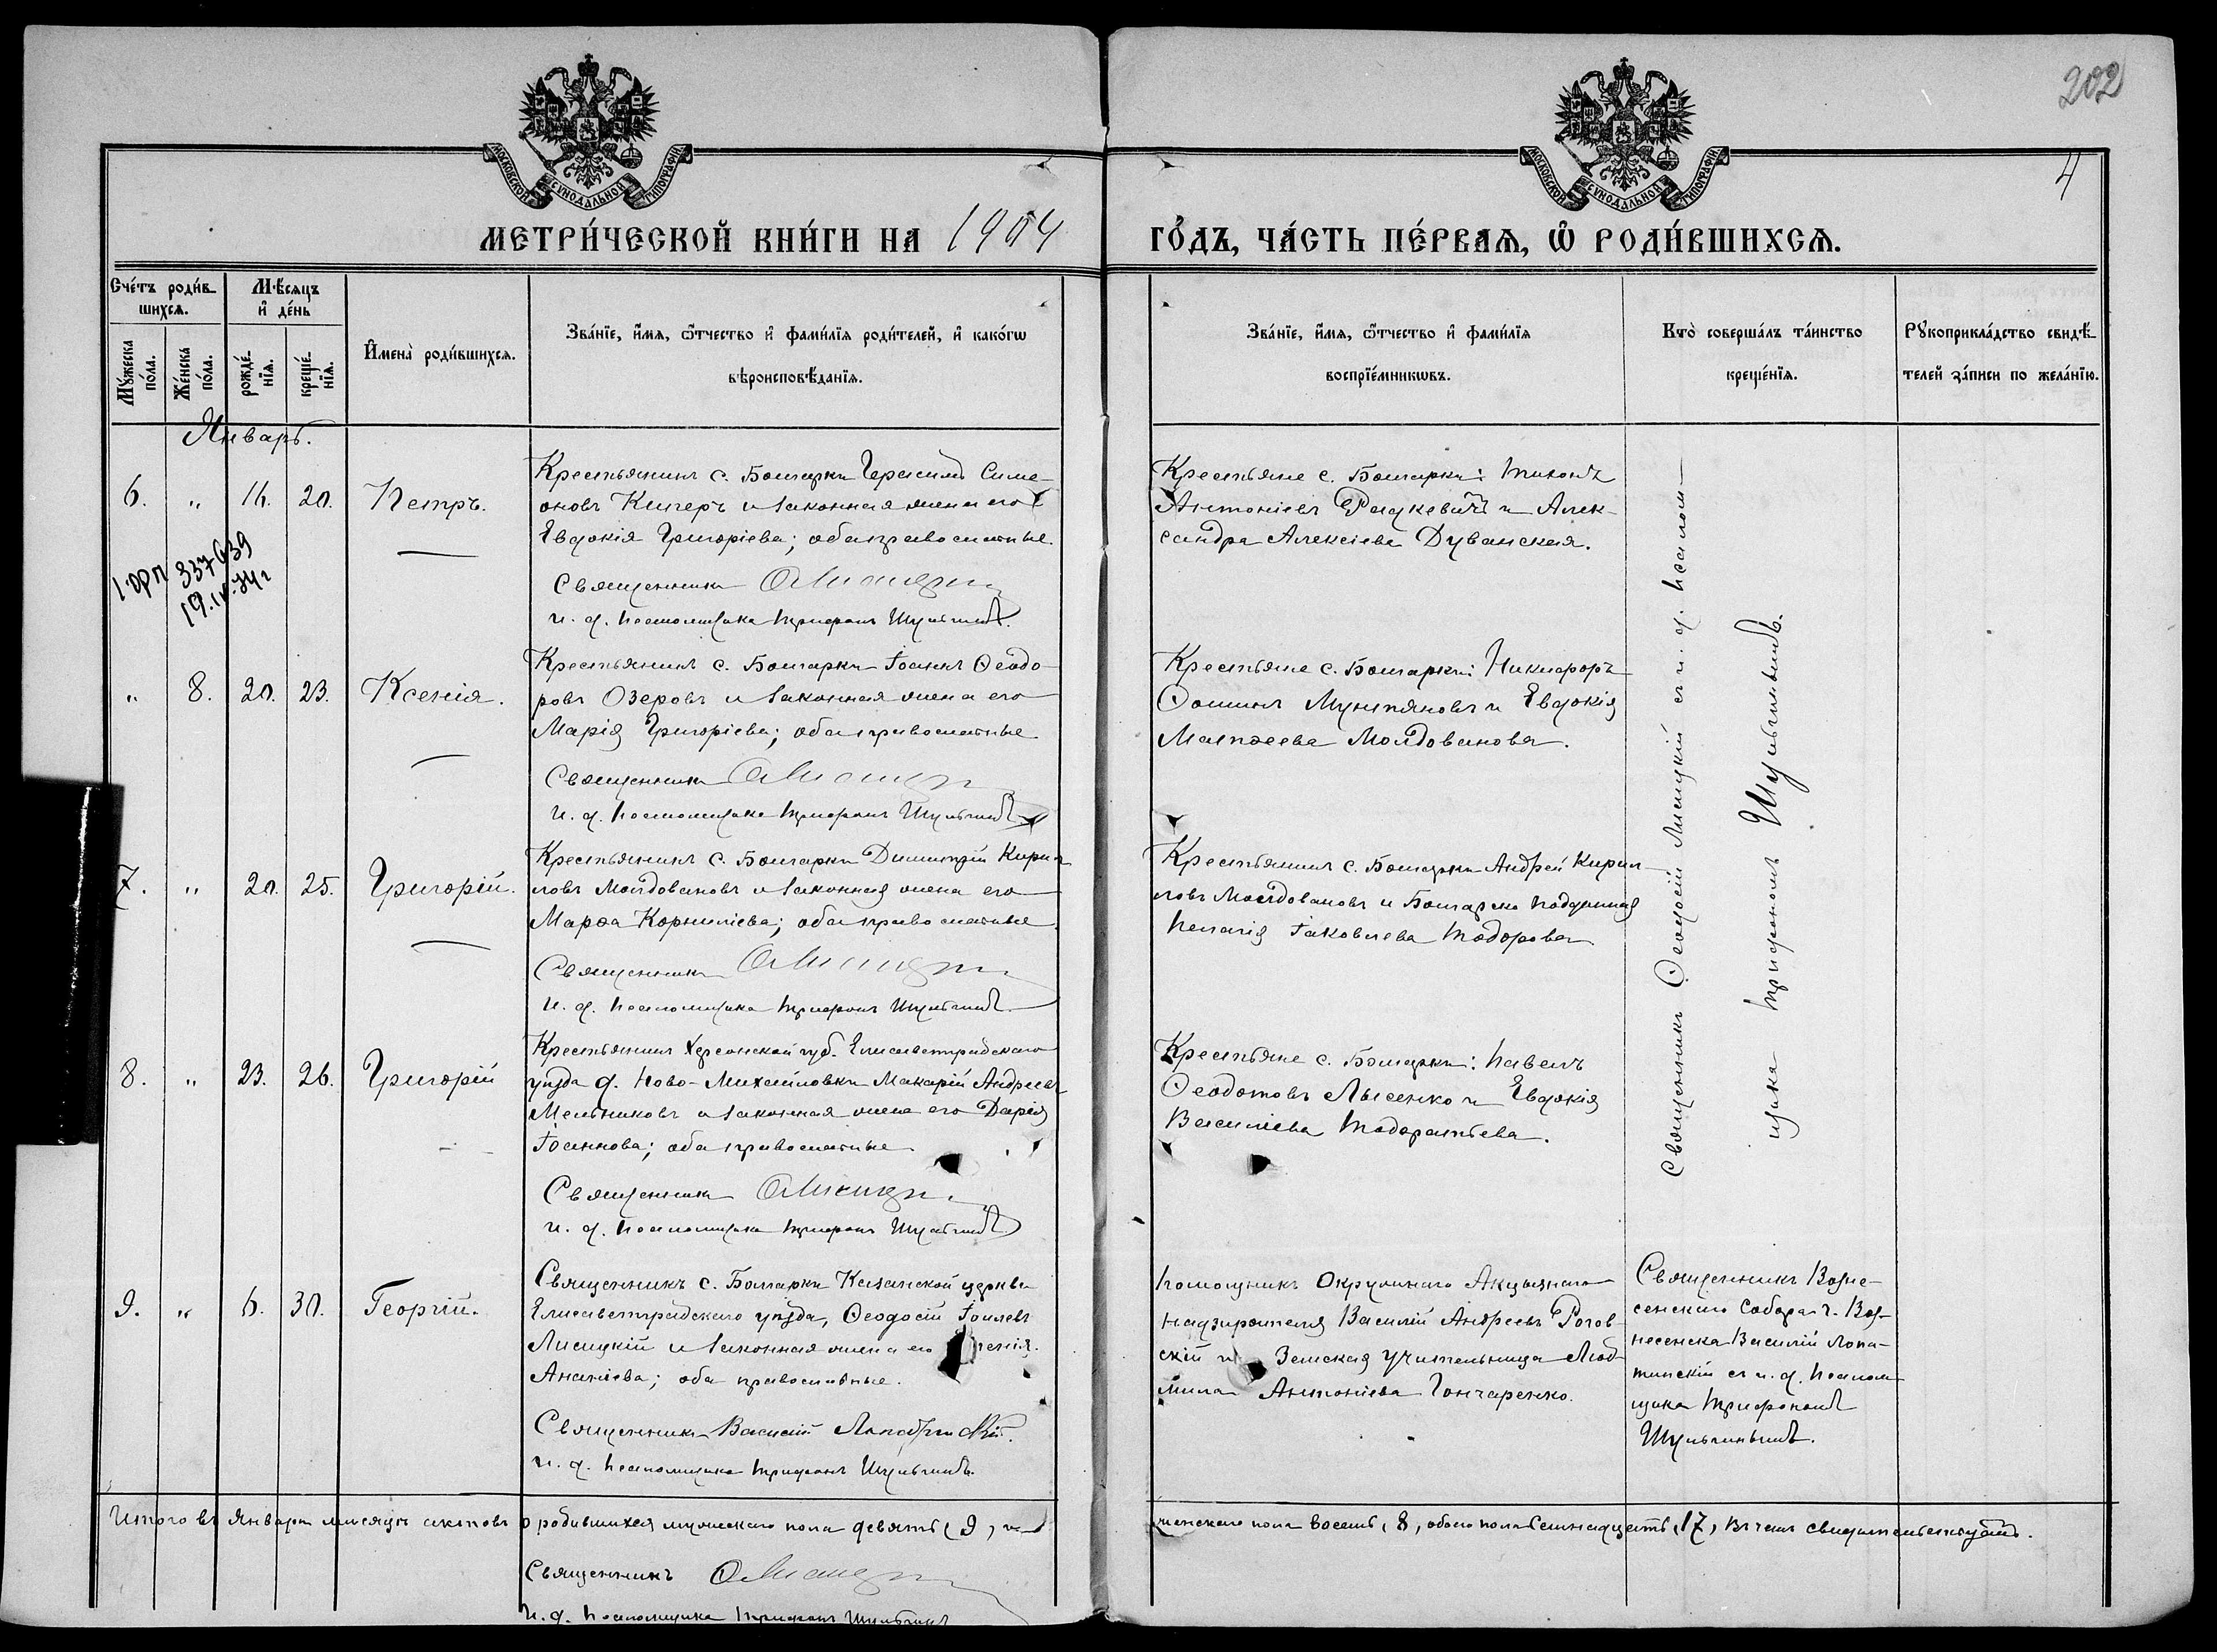 202
4
МОСКОВСКОЙ СѴНОДАЛЬНОЙ ТИПОГРАФІИ
МОСКОВСКОЙ СѴНОДАЛЬНОЙ ТИПОГРАФІИ
МЕТРИ́ЧЕСКОЙ КНИ́ГИ НА 1904 ГО́ДЪ, ЧА́СТЬ ПЕ́РВАѦ, Ѽ РОДИ́ВШИХСѦ.
Сче́тъ роди́в-
шихсѧ.
Мѣ́сѧцъ
и҆ де́нь
Мꙋ́жеска по́ла.
Же́нска по́ла.
рожде́-нїѧ.
креще́-нїѧ.
И҆мена̀ роди́вшихсѧ.
Зва́нїе, и҆́мѧ, ѻ҆́тчество и҆ фами́лїѧ роди́телей, и҆ како́гѡ
вѣроисповѣ́данїѧ.
Зва́нїе, и҆́мѧ, ѻ҆́тчество и҆ фами́лїѧ
воспрїе́мникѡвъ.
Кто̀ соверша́лъ та́инство
креще́нїѧ.
Рꙋкоприкла́дство свидѣ́-
телей за́писи по жела́нїю.
Январь.
6. " 16. 20. Петръ.
Крестьянинъ с. Болгарки Герасимъ Симе-
оновъ Кихеръ и законная жена его
Евдокія Григоріева; оба православные.
Священникъ
и. д. псаломщика Трифонъ Шульгинъ.
Крестьяне с. Болгарки: Тихонъ
Антоніевъ Радкевичъ и Алек-
сандра Алексіева Дуванская.
337639
19.IV.34г
" 8. 20. 23. Ксенія.
Крестьянинъ с. Болгарки Іоаннъ Ѳеодо-
ровъ Озеровъ и законная жена его
Марія Григоріева; оба православные
Священникъ
и. д. псаломщика Трифонъ Шульгинъ
Крестьяне с. Болгарки: Никифоръ
Ѳоминъ Мунтяновъ и Евдокія
Матѳеева Молдованова.
7. " 20. 25. Григорій.
Крестьянинъ с. Болгарки Димитрій Кирил-
ловъ Молдовановъ и законная жена его
Марѳа Корниліева; оба православные.
Священникъ
и. д. псаломщика Трифонъ Шульгинъ
Крестьянинъ с. Болгарки Андрей Кирил-
ловъ Молдовановъ и Болгарско подданная
Пелагія Іаковлева Тодорова
8. " 23. 26. Григорій
Крестьянинъ Херсонской губ. Елисаветградскаго
уѣзда д. Ново-Михайловки Макарій Андреевъ
Мельниковъ и законная жена его Дарія
Іоаннова; оба православные
Священникъ
и. д. псаломщика Трифонъ Шульгинъ
Крестьяне с. Болгарки: Павелъ
Ѳеодотовъ Лысенко и Евдокія
Василіева
Священникъ Ѳеодосій Лисицкій съ и. д. псалом-
щика Трифономъ Шульгинымъ.
9. " 6. 30. Георгій.
Священникъ с. Болгарки Казанской церкви
Елисаветградскаго уѣзда, Ѳеодосій Іоилевъ
Лисицкій и законная жена его
Ананіева; оба православные.
Священникъ Василій Лопатинскій.
и. д. псаломщика Трифонъ Шульгинъ.
Помощникъ Окружнаго Акцызнаго
надзирателя Василій Андреевъ Рогов-
скій и Земская учительница Люд-
мила Антоніева Гончаренко.
Священникъ Возне-
сенскаго Собора г. Воз-
несенска Василій Лопа-
тинскій съ и. д. псалом-
щика Трифономъ
Шульгинымъ.
Итого въ Январѣ мѣсяцѣ актовъ о родившихся мужескаго пола девять (9), и женскаго пола восемь (8), обоего пола семнадцать (17), въ чемъ свидѣтельствуютъ.
Священникъ
и. д. псаломщика Трифонъ Шульгинъ